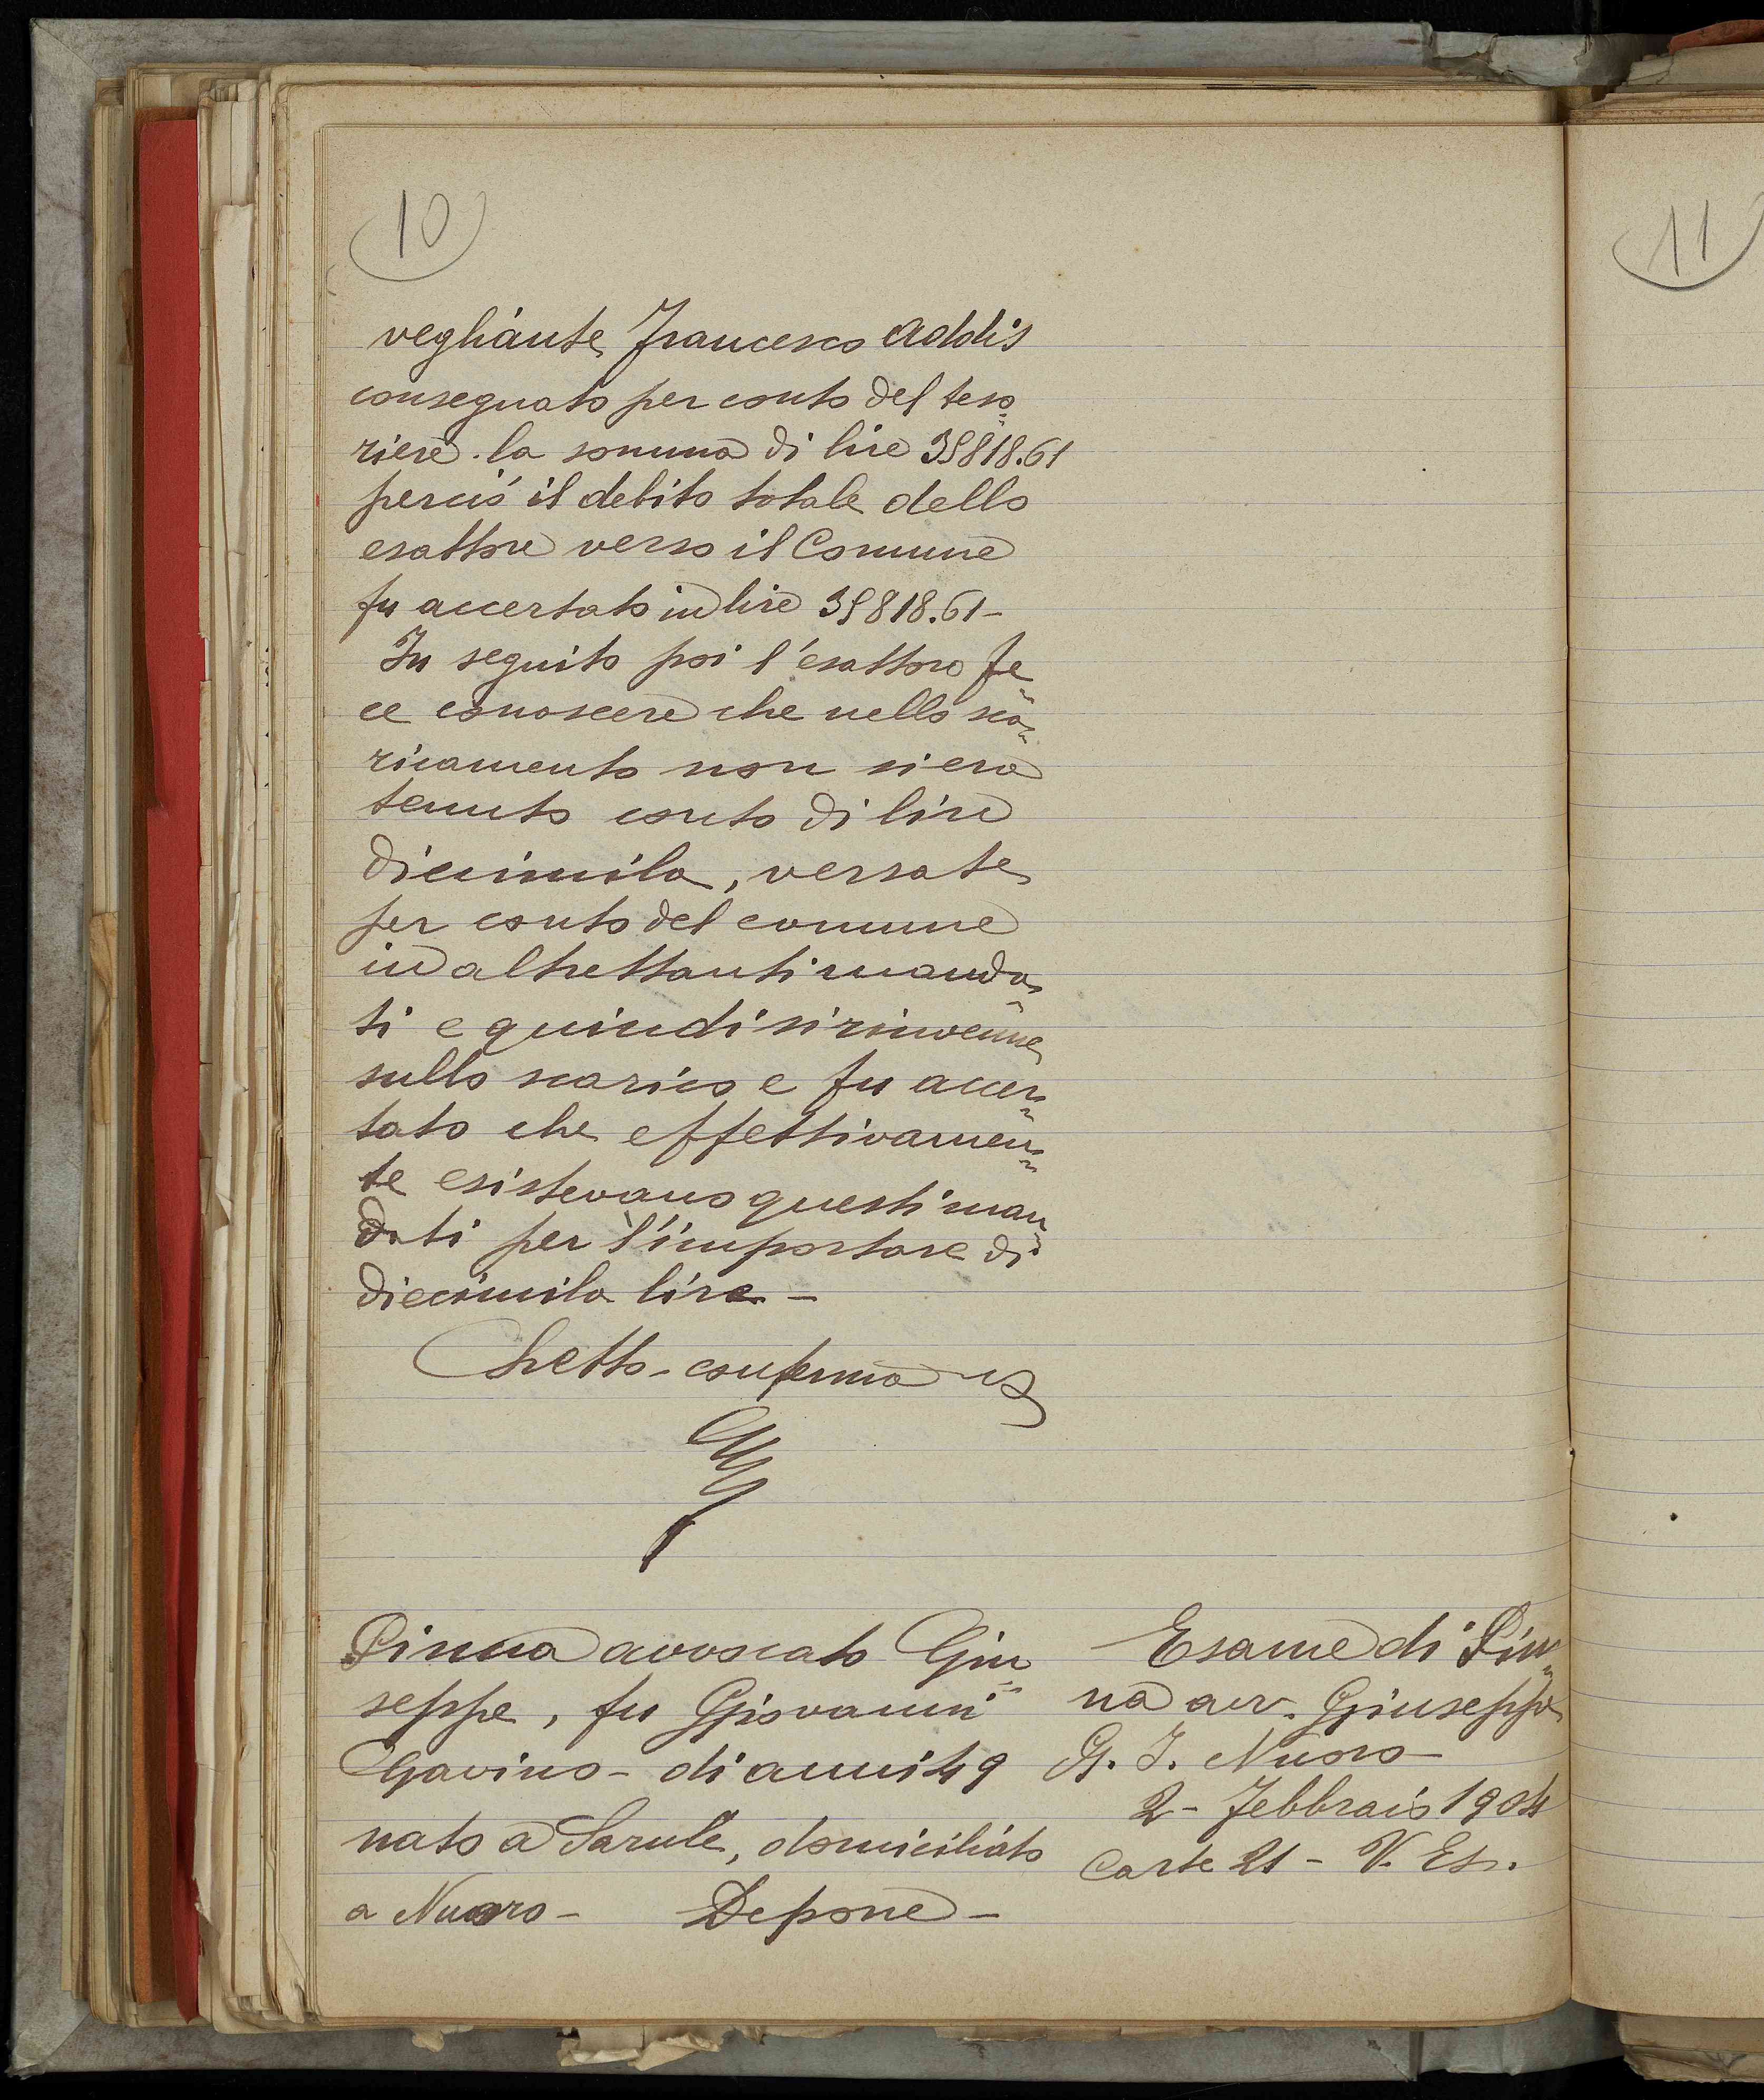 10
vegliante Francesco Addis
consegnato per conto del teso„
riere la somma di lire 35818.61
perciò il debito totale dello
esattore verso il Comune
fu accertato in lire 35818.61 –
In seguito poi l'esattore fe„
ce conoscere che nello sca„
ricamento non si era
tenuto conto di lire
diecimila, versate
per conto del comune
in altrettanti manda„
ti e quindi si rinvenne
sullo scarico e fu accer„
tato che effettivamen„
te esistevano questi man„
dati per l'importare di
diecimila lire –
Letto – conferma
Pinna avvocato Giu„
seppe, fu Giovanni
Gavino – di anni 49
nato a Sarule, domiciliato
a Nuoro – Depone –
Esame di Pin„
na avv. Giuseppe
G. I. Nuoro –
2 – Febbraio 1904
Carte 21 – V. Es.
11